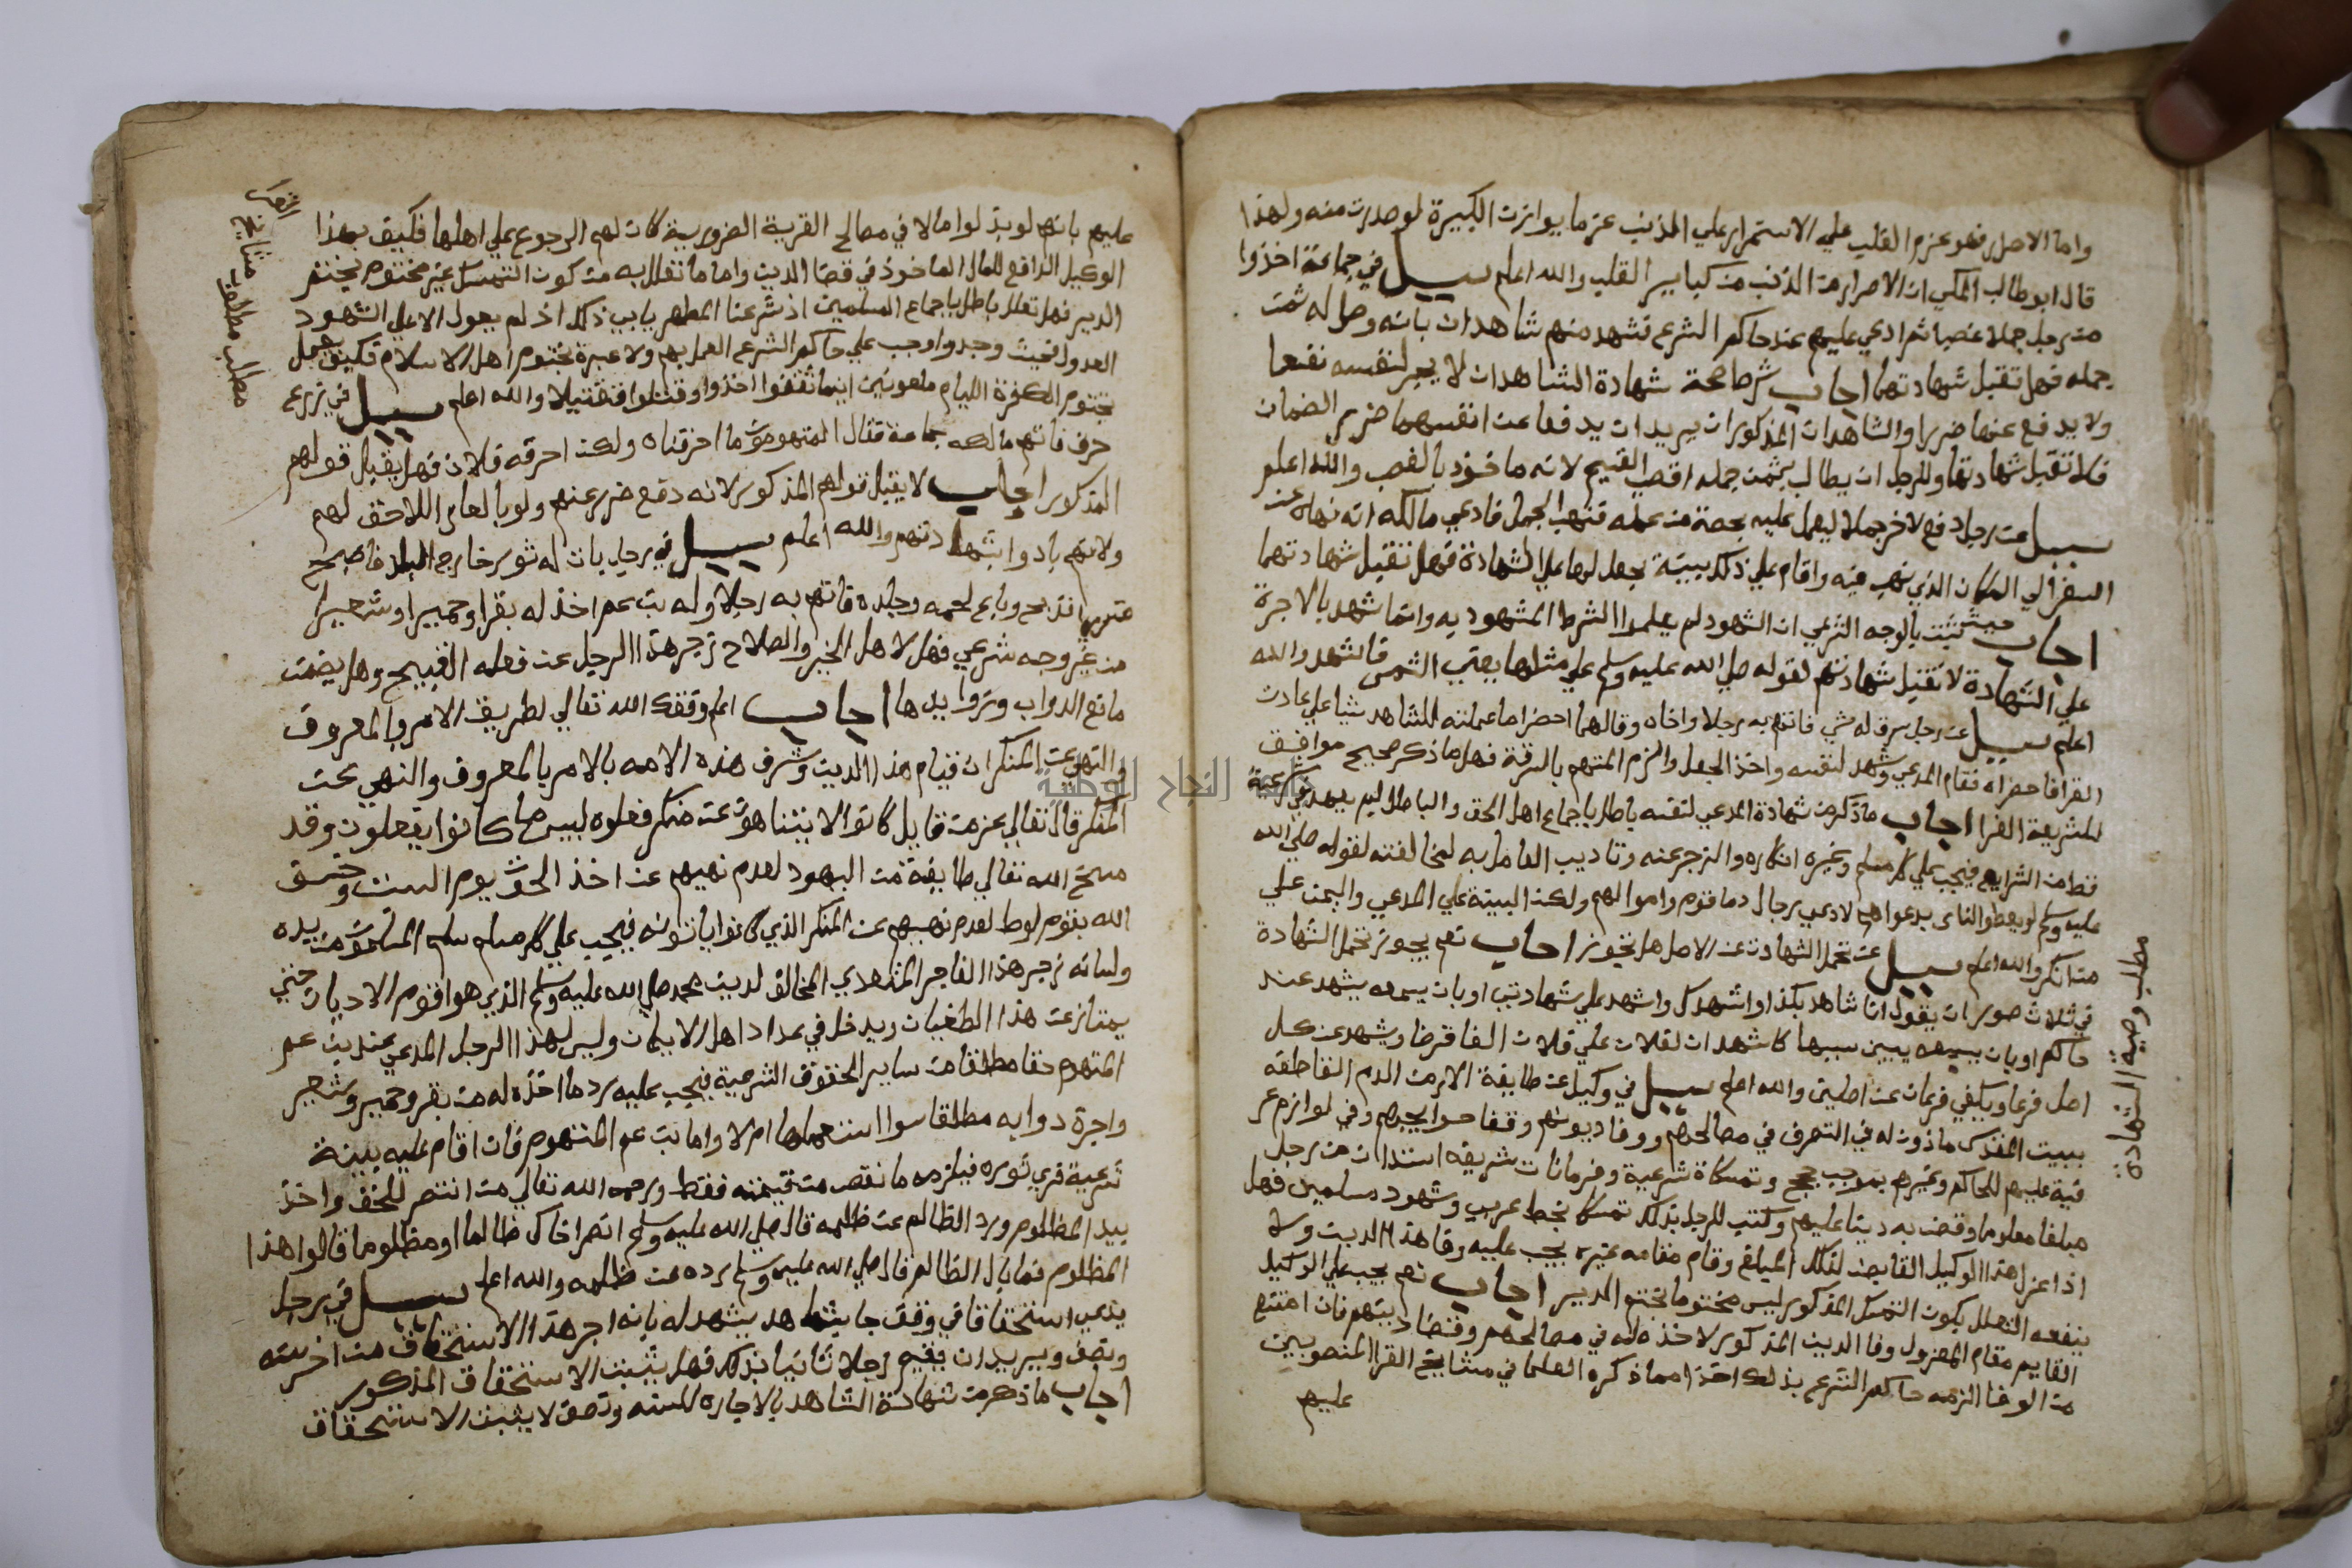 واما الاصرار فهو عزم القلب علي الاستمرار علي الذنب عزما يوازن الكبيرة لو صدرت منه ولهذا
قال ابو طالب المكي ان الاصرار من الذنب من كباير القلب والله اعلم سيل في جماعة اخذوا
من رجل جملا غصبا ثم ادعي عليهم عند حاكم الشرع فشهد منهم شاهدان بانه وصل له ثمن
جمله فهل تقبل شهادتهما اجاب شرط صحة شهادة الشاهدان لا يجر لنفسه نفعا
ولا يدفع عنها ضررا والشاهدان المذكوران يريدان يدفعا عن انفسهما ضرر الضمان
فلا تقبل شهادتها وللرجل ان يطالب بثمن جمله اقصي القيم لانه ماخوذ بالغصب والله اعلم
سيل عن رجل دفع لاخر جملا ليعمل عليه بحصة من عمله فنهب الجمل فادعي مالكه انه نهاه عن
السفر الي المكان الذي نهب فيه واقام علي ذلك بينة جعل لها علي الشهادة فهل تقبل شهادتهما
اجاب حيث ثبت بالوجه الشرعي ان الشهود لم يعلموا الشرط المشهود به وانما شهد بالاجرة
علي الشهادة لا تقبل شهادتهم لقوله صلي الله عليه وسلم علي مثلها يعني الشمس فاشهد والله
اعلم سيل عن رجل سرق له شي فاتهم به رجلا واخاه وقال لهما احضرا ما عملته للشاهد شيا علي عادت
القرا فاحضراه فقام المدعي وشهد لنفسه واخذ الجعل والزم المتهم بالسرقة فهل ما ذكر صحيح موافق
للشريعة الغرا اجاب ما ذكر من شهادة المدعي لنفسه باطل باجماع اهل الحق والباطل لم يعهد في شرعية
قط من الشرايع فيجب علي كل مسلم وغيره انكاره والزجر عنه وتاديب الفاعل به لمخالفته لقوله صلي الله
عليه وسلم لو يعطوا الناس بدعواهم لادعي رجال دما قوم واموالهم ولكن البينة علي المدعي واليمن علي
من انكر والله اعلم سيل عن تحمل الشهادت عن الاصل هل تجوز اجاب نعم يجوز تحمل الشهادة
في ثلاث صور ان يقول انا شاهد بكذا واشهدك واشهد علي شهادتي او بان يسمعه يشهد عند
حاكم او بان يسمعه يبين سببها كاشهد ان لفلان علي فلان الفا قرضا ويشهد عن كل
اصل فرعا ويكفي فرعان عن اصلين والله اعلم سيل في وكيل عن طايفة الارمن الدم القاطعه
ببيت المقدس ماذون له في التصرف في مصالحهم ووفا ديونهم وقضا حوايجهم وفي لوازم غر
فية عليهم للحاكم وغيرهم بموجب حجج وتمسكاة شرعية وفرمانات شريفه استدان من رجل
مبلغا معلوما وقضي به دينا عليهم وكتب للرجل بذلك تمسكا بخط عربي وشهود مسلمين فهل
اذا عزل هذا الوكيل القابض لذلك المبلغ وقام مقامه غيره يجب عليه وفا هذا الدين ولا
ينفعه التعلل بكون التمسك المذكور ليس مختوما بختم الدير اجاب نعم يجب علي الوكيل
القايم مقام المعزول وفا الدين المذكور لاخذه له في مصالحهم وقضا دينهم فان امتنع
من الوفا الزمه حاكم الشرع بذلك اخذا مما ذكره العلما في مشايخ القرا المنصوبين
عليهم
مطلب وصية الشهادة
عليهم بانهم لو بذلوا مالا في مصالح القرية الضرورية كان لهم الرجوع علي اهلها فكيف بهذا
الوكيل الدافع للمال الماخوذ في قضا الدين واما ما تعلل به من كون التمسك غير مختوم بختم
الدير فهل تعلل باطل باجماع المسلمين اذ شرعنا المطهر يابي ذلك اذ لم يعول الا علي الشهود
العدول فحيث وجدوا وجب علي حاكم الشرع العمل بهم ولا عبرة بختوم اهل الاسلام فكيف يعمل
بختوم الكفرة الليام ملعونين اينما ثقفوا اخذوا وقتلوا تقتيلا والله اعلم سيل في زرع
حرق فاتهم مالكه جماعة فقال المتهومون ما احرقناه ولكن احرقه فلان فهل يقبل قولهم
المذكور اجاب لا يقبل قولهم المذكور لانه دفع ضرر عنهم ولو بالعار اللاحق لهم
ولانهم بادوا بشهادتهم والله اعلم سيل في رجل بات له ثور خارج البلد فاصبح
فذبحه وباع لحمه وجلده فاتهم به رجلا وله بن عم اخذ له بقرا وحميرا وشعيرا
من غير وجه شرعي فهل لاهل الخير والصلاح زجر هذا الرجل عن فعله القبيح وهل يضمن
منافع الدواب وزوايدها اجاب اعلم وفقك الله تعالي لطريق الامر بالمعروف
والنهي عن المنكر ان قيام هذا الدين وشرف هذه الامه بالامر بالمعروف والنهي عن
المنكر قال تعالي عز من قايل كانوا لا يتناهون عن منكر فعلوه لبيس ما كانوا يفعلون وقد
مسخ الله تعالي طايفة من اليهود لعدم نهيهم عن اخذ الحوت يوم السبت وخسف
الله بقوم لوط لعدم نهيهم عن المنكر الذي كانوا ياتونه فيجب علي كل مسلم سلم المسلمون من يده
ولسانه زجر هذا الفاجر المتعدي المخالف لدين محمد صلي الله عليه وسلم الذي هو اقوم الاديان حتي
يمتاز عن هذا الطغيان ويدخل في عداد اهل الايمان وليس لهذا الرجل المدعي عند بن عم
المتهوم حقا مطلقا من ساير الحقوق الشرعية فيجب عليه رد ما اخذه له من بقر وحمير وشعير
واجرة دوابه مطلقا سوا استعملها ام لا واما بن عم المتهوم فان اقام عليه بينة
شرعية فري ثوره فيلزمه ما نقص من قيمته فقط ورحم الله تعالي من انتصر للحق واخذ
بيد المظلوم ورد الظالم عن ظلمه قال صلي الله عليه وسلم انصر اخاك ظالما او مظلوما قالوا هذا
المظلوم فما بال الظالم قال صلي الله عليه وسلم رده عن ظلمه والله اعلم سيل في رجل
يدعي استحقاقا في وقف جا بشاهد يشهد له بانه اجر هذا الاستحقاق من اخر سنه
ونصف ويريد ان يقيم رجلا ثانيا بذلك فهل يثبت الاستحقاق المذكور
اجاب ما ذكر من شهادة الشاهد بالاجاره للسنه ونصف لا يثبت الاستحقاق
مطلب